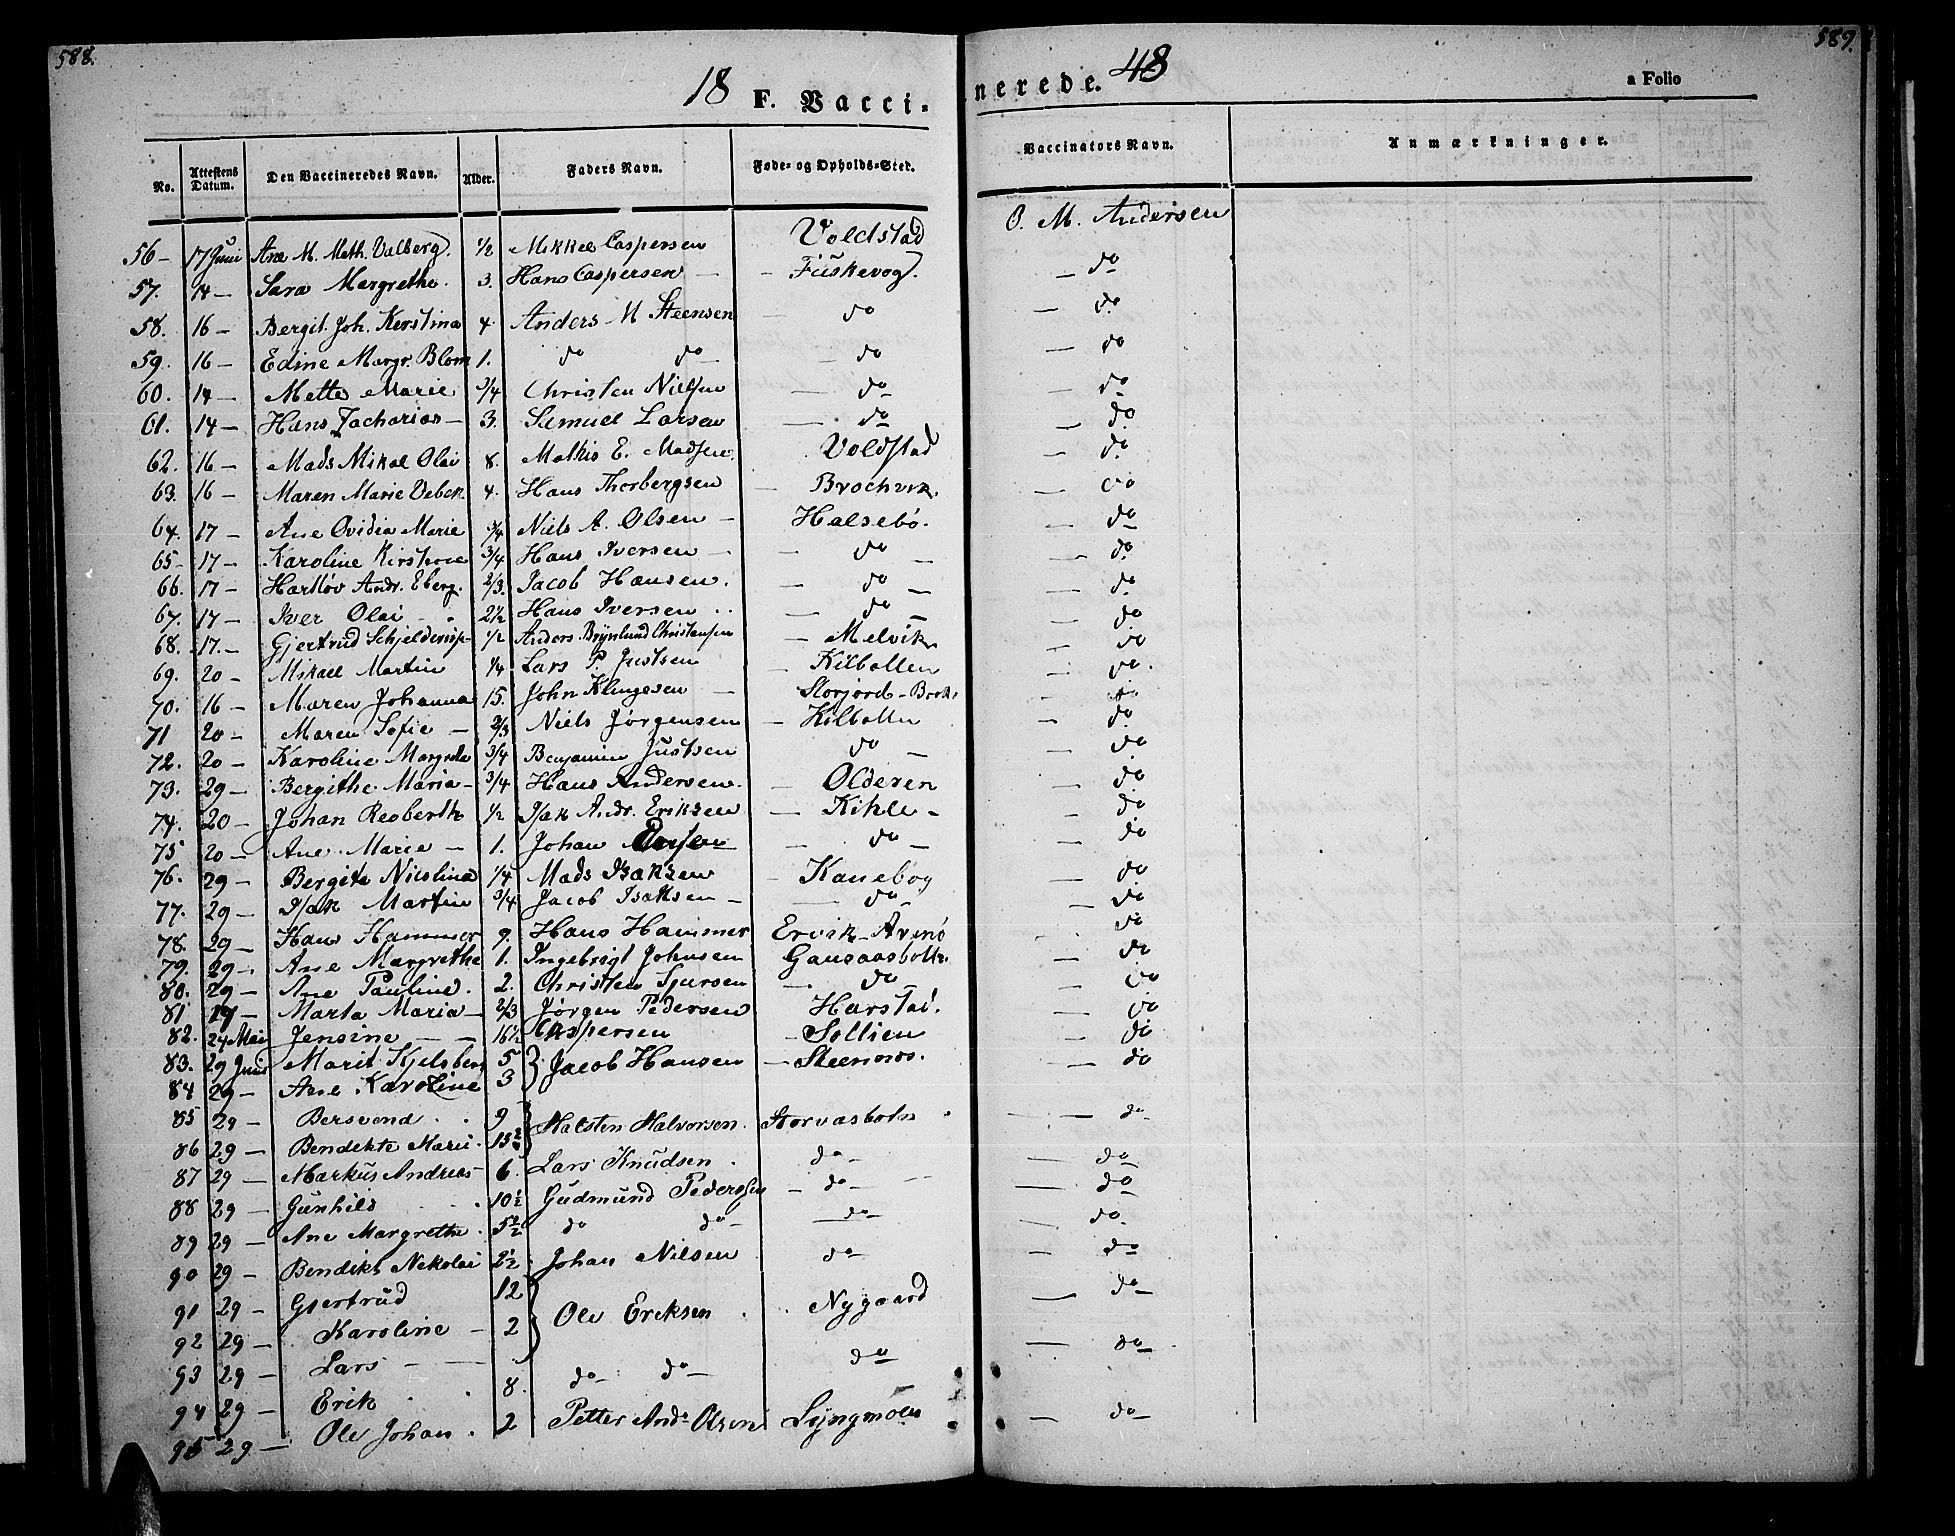 588.
589.
18 F. Vacci-nerede. 48
a Folio
No. Attestens Datum. Den Vaccineredes Navn. Alder. Faders Navn. Føde- og Opholds-Sted. Vaccinators Navn. Anmærkninger.
56 - 17 Juni Ane M. Meth. Valberg. 1/2 Mikkel Caspersen Voldstad O. M. Andersen
57. 14 - Sara Margrethe. 3. Hans Caspersen - - Fiskevog. - do
58. 16 - Bergit. Joh. Kerstina 4. Anders M Steensen - do - do
59. 16 - Edine Margr. Blom 1. do do - do - do
60. 14 - Mette Marie 3/4 Christen Nielsen - do - do
61. 14 - Hans Zacharias - 3. Samuel Larsen - do - do
62. 16 - Mads Mikal Olai 8. Mathis E. Madsen. Voldstad - do
63. 16 - Maren Marie 4. Hans Thorbergsen - Brochvik. - do
64. 17 - Ane Ovidia Marie 3/4 Niels A. Olsen - Halsebø. - do
65 - 17 - Karoline Kirstine 3/4 Hans Iversen - - do - - do
66. 17 - Hartløv Andr. Eberg. 2/3. Jacob Hansen. - do - - do
67. 17 - Iver Olai 2 1/2 Hans Iversen - do - - do
68. 17. - Gjertrud Schjelderup- 1/2 Anders Brynlund Christensen - Melvik - do
69. 20 - Mikael Martin 1/4 Lars P. Justsen - Kilbotten - do.
70. 16 - Maren Johanna 15. John Klingesen - Storjord - Brok. - do
71 20 - Maren Sofie - 2/3 Niels Jørgensen - Kilbotten - do
72. 20 - Karoline 3/4 Benjamin Justsen do - - do
73. 29 - Bergithe Maria - 3/4 Hans Andersen. - Olderen - do
74. 20 - Johan Reoberth 1/2 Isak Andr. Eriksen - Kihle - - do
75 20 - Ane Maria - 1. Johan - do - - do
76. 29 - Bergita Nicolina 1/4 Mads Isaksen - Kanebog - do
77. 29 - Isak Martin 3/4 Jacob Isaksen - - do - - do
78. 29 - Hans Hammer 9. Hans Hammer Ervik - - do
79. 29 - Ane Margrethe 1. Ingebrigt Johnsen Gansaasbotn. - do
80. 29 - Ane Pauline. 2. Christen - do - - do
81 17 - Marta Maria - 2/3 Jørgen Pedersen Harstad. - do
82. 24 Mai Jensine - - 16 1/2 Caspersen - Sollien - do
83. 29 Juni Marit Kjelsberg 5 } Jacob Hansen - Steennes. - do
84 29 - Ane Karoline 3
85 29 - Bersvend . . 9 } Halsten Halvorsen. Storvasbotn - - do -
86 29 - Bendekte Marie. 15
87 29 - Markus Andreas - 6. Lars Knudsen . do - - do
88 29 - Gunhild . . 10 1/2 Gudmund Pedersen - do - - do
89 29 - Ane Margrethe. 5 1/2 do do - - do - - do.
90 29 - Bendikt Nekolai 2 1/2 Johan Nilsen do - - do
91 29 - Gjertrud 12 } Ole Eriksen . Nygaard - do -
92 29 - Karoline - 2
93 29 - Lars - - do - do - do - do -
94 29 - Erik . . 8.
95 29 - Ole Johan . 2 Petter Ands Olsen Lyngmoen - do -